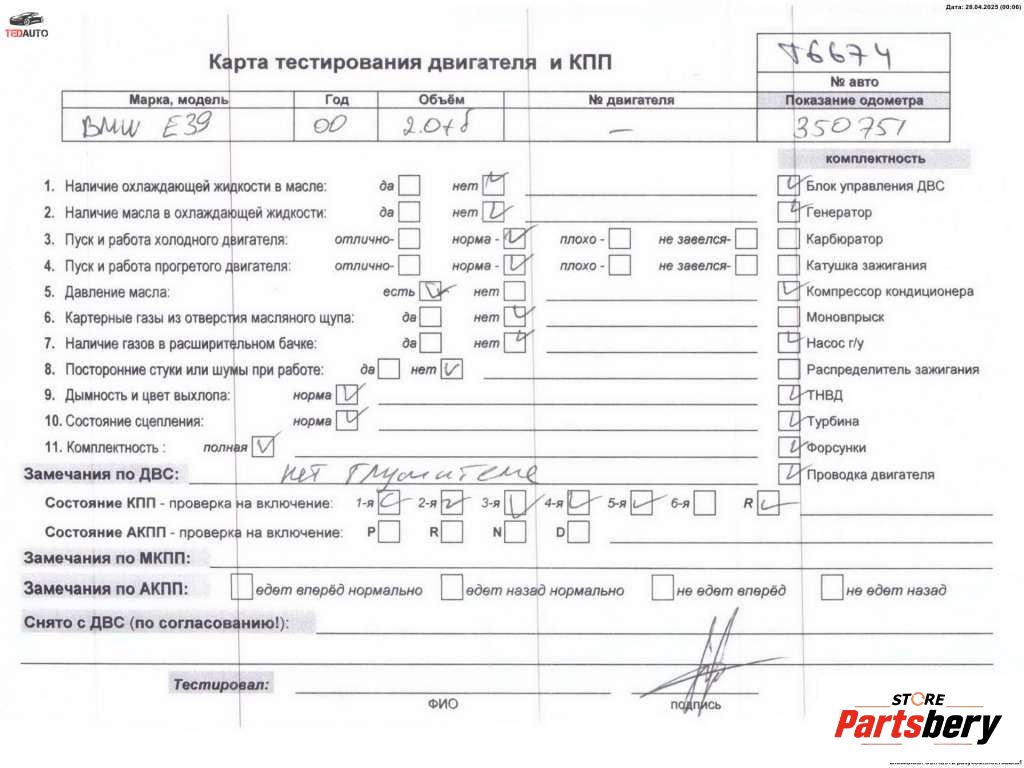 Дата: 28.04.2025 (00:06)
TEDAUTO
Карта тестирования двигателя и КПП
T6674
№ авто
Марка, модель Год Объём № двигателя Показание одометра
BMW E39 00 2.0тд — 350751
комплектность
1. Наличие охлаждающей жидкости в масле: да нет Блок управления ДВС
2. Наличие масла в охлаждающей жидкости: да нет Генератор
3. Пуск и работа холодного двигателя: отлично- норма - плохо - не завелся- Карбюратор
4. Пуск и работа прогретого двигателя: отлично- норма - плохо - не завелся- Катушка зажигания
5. Давление масла: есть нет Компрессор кондиционера
6. Картерные газы из отверстия масляного щупа: да нет Моновпрыск
7. Наличие газов в расширительном бачке: да нет Насос г/у
8. Посторонние стуки или шумы при работе: да нет Распределитель зажигания
9. Дымность и цвет выхлопа: норма ТНВД
10. Состояние сцепления: норма Турбина
11. Комплектность : полная Форсунки
Замечания по ДВС: нет глушителя Проводка двигателя
Состояние КПП - проверка на включение: 1-я 2-я 3-я 4-я 5-я 6-я R
Состояние АКПП - проверка на включение: P R N D
Замечания по МКПП:
Замечания по АКПП: едет вперёд нормально едет назад нормально не едет вперёд не едет назад
Снято с ДВС (по согласованию!):
Тестировал:
ФИО подпись
STORE
Partsbery